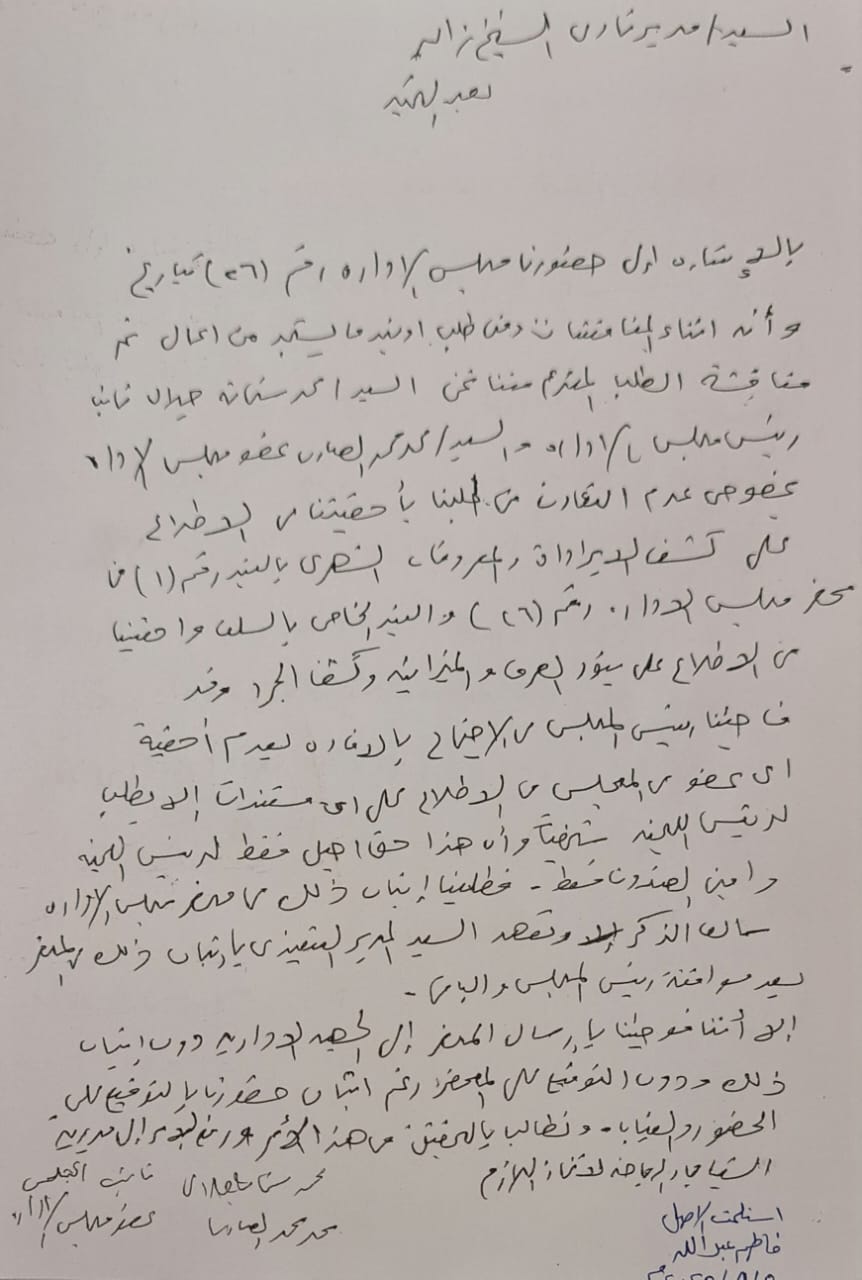 السيد/ مدير نادى الشيخ زايد
بعد التحية
بالإشارة إلى حضورنا مجلس الإدارة رقم (٢٦) بتاريخ
وأنه اثناء المناقشات وفى طلب او بند ما يستجد من اعمال تم
مناقشة الطلب المقدم مننا نحن السيد/ محمد شحاته جلال نائب
رئيس مجلس الإدارة والسيد/ محمد محمد الصاوى عضو مجلس الإدارة
بخصوص عدم التعاون فى طلبنا بأحقيتنا فى الاطلاع
على كشف الايرادات والمصروفات الشهرى بالبند رقم (١) فى
محضر مجلس الادارة رقم (٢٦) والبند الخاص بالسلف واحقيتنا
فى الاطلاع على بنود الصرف والميزانية وكشف الجرد وقد
فاجئنا رئيس المجلس فى الاجتماع بالافادة بعدم أحقية
اى عضو فى المجلس فى الاطلاع على اى مستندات إلا بطلب
لرئيس اللجنة شخصياً وأن هذا حق اصيل فقط لرئيس اللجنة
وامين الصندوق فقط - فطلبنا إثبات ذلك فى محضر مجلس الإدارة
سالف الذكر وتعهد السيد المدير التنفيذى بإثبات ذلك بالمحضر
بعد موافقة رئيس المجلس
إلا أننا فوجئنا بإرسال المحضر إلى الجهة الادارية دون إثبات
ذلك ودون التوقيع على المحضر رغم اثبات حضورنا بالتوقيع على
الحضور والغياب. ونطالب بالتحقيق فى هذا الأمر ورفع الامر إلى مديرية
الشباب والرياضة لاتخاذ اللازم
محمد شحاته جلال نائب المجلس
محمد محمد الصاوى عضو مجلس الإدارة
استلمت الاصل
فاطمه عبدالله